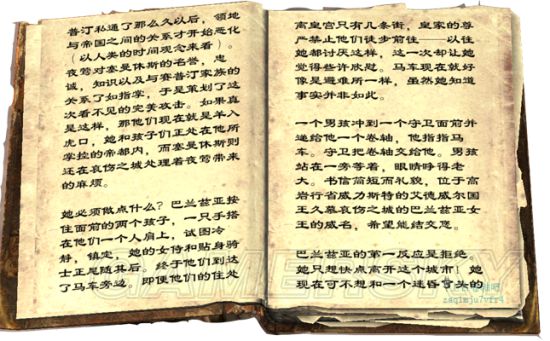 普汀私通了那么久以后，领地
与帝国之间的关系才开始恶化
（以人类的时间观念来看）。
夜莺对塞曼休斯的名誉，忠
诚，知识以及与赛普汀家族的
关系了如指掌，于是策划了这
次看不见的完美攻击。如果真
是这样，那他们现在就是羊入
虎口，她和孩子们正处在他所
掌控的帝都内，而塞曼休斯则
还在哀伤之城处理着夜莺带来
的麻烦。
她必须做点什么？巴兰兹亚按
住面前的两个孩子，一只手搭
在他们一个人肩上，试图冷
静，镇定，她的女侍和贴身骑
士正尾随其后。终于他们到达
了马车旁边。即便他们的住处
离皇宫只有几条街，皇家的尊
严禁止他们徒步前往——以往
她都讨厌这样，这一次却让她
觉得些许欣慰。马车现在就好
像是避难所一样，虽然她知道
事实并非如此。
一个男孩冲到一个守卫面前并
递给他一个卷轴，他指指马
车。守卫把卷轴交给他。男孩
站在一旁等着，眼睛睁得老
大。书信简短而礼貌，位于高
岩行省威力斯特的艾德威尔国
王久慕哀伤之城的巴兰兹亚女
王的威名，希望能结交您。
巴兰兹亚的第一反应是拒绝。
她只想快点离开这个城市！她
现在可不想和一个迷昏了头的
GAMERSKY
zsqimju7vfr4